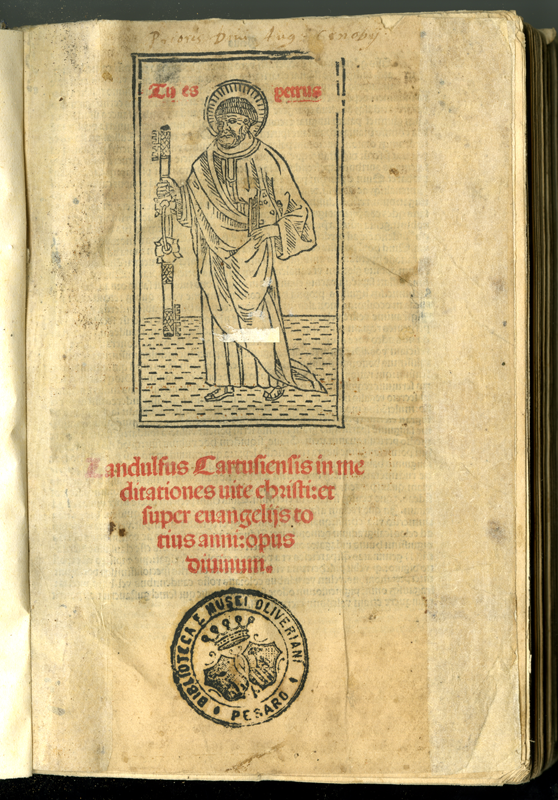 Prioris Dom Aug. Cenobij
Tu es petrus
Landulfus Cartusiensis in me
ditationes uite christi:et
super euangelijs to
tius anni:opus
diuinum.
BIBLIOTECA E MUSEI OLIVERIANI
PESARO